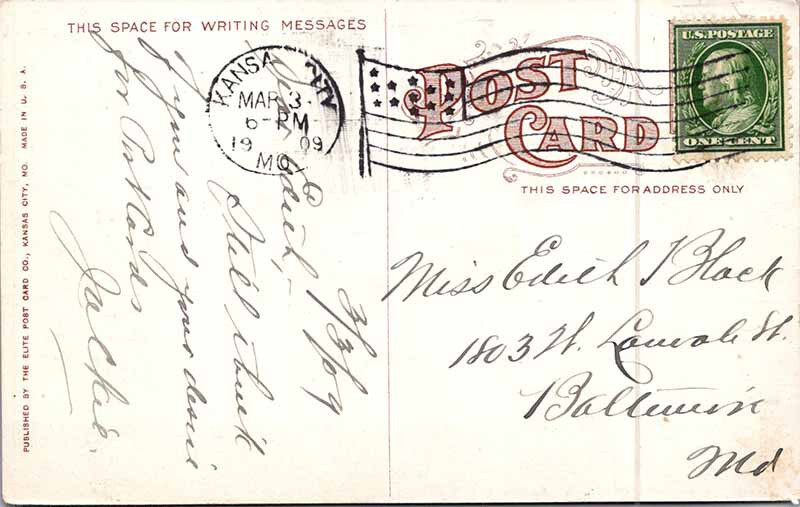 THIS SPACE FOR WRITING MESSAGES
3/3/09
Dear Edith,-
Still think
of you and your desire
for Postcards
Jackie.
KANSAS CITY
MAR 3
6-PM
19 09
MO.
POST
CARD
U.S. POSTAGE
ONE CENT
THIS SPACE FOR ADDRESS ONLY
Miss Edith Black
1803 W. St.
Baltimore
Md
PUBLISHED BY THE ELITE POST CARD CO., KANSAS CITY, MO. MADE IN U. S. A.